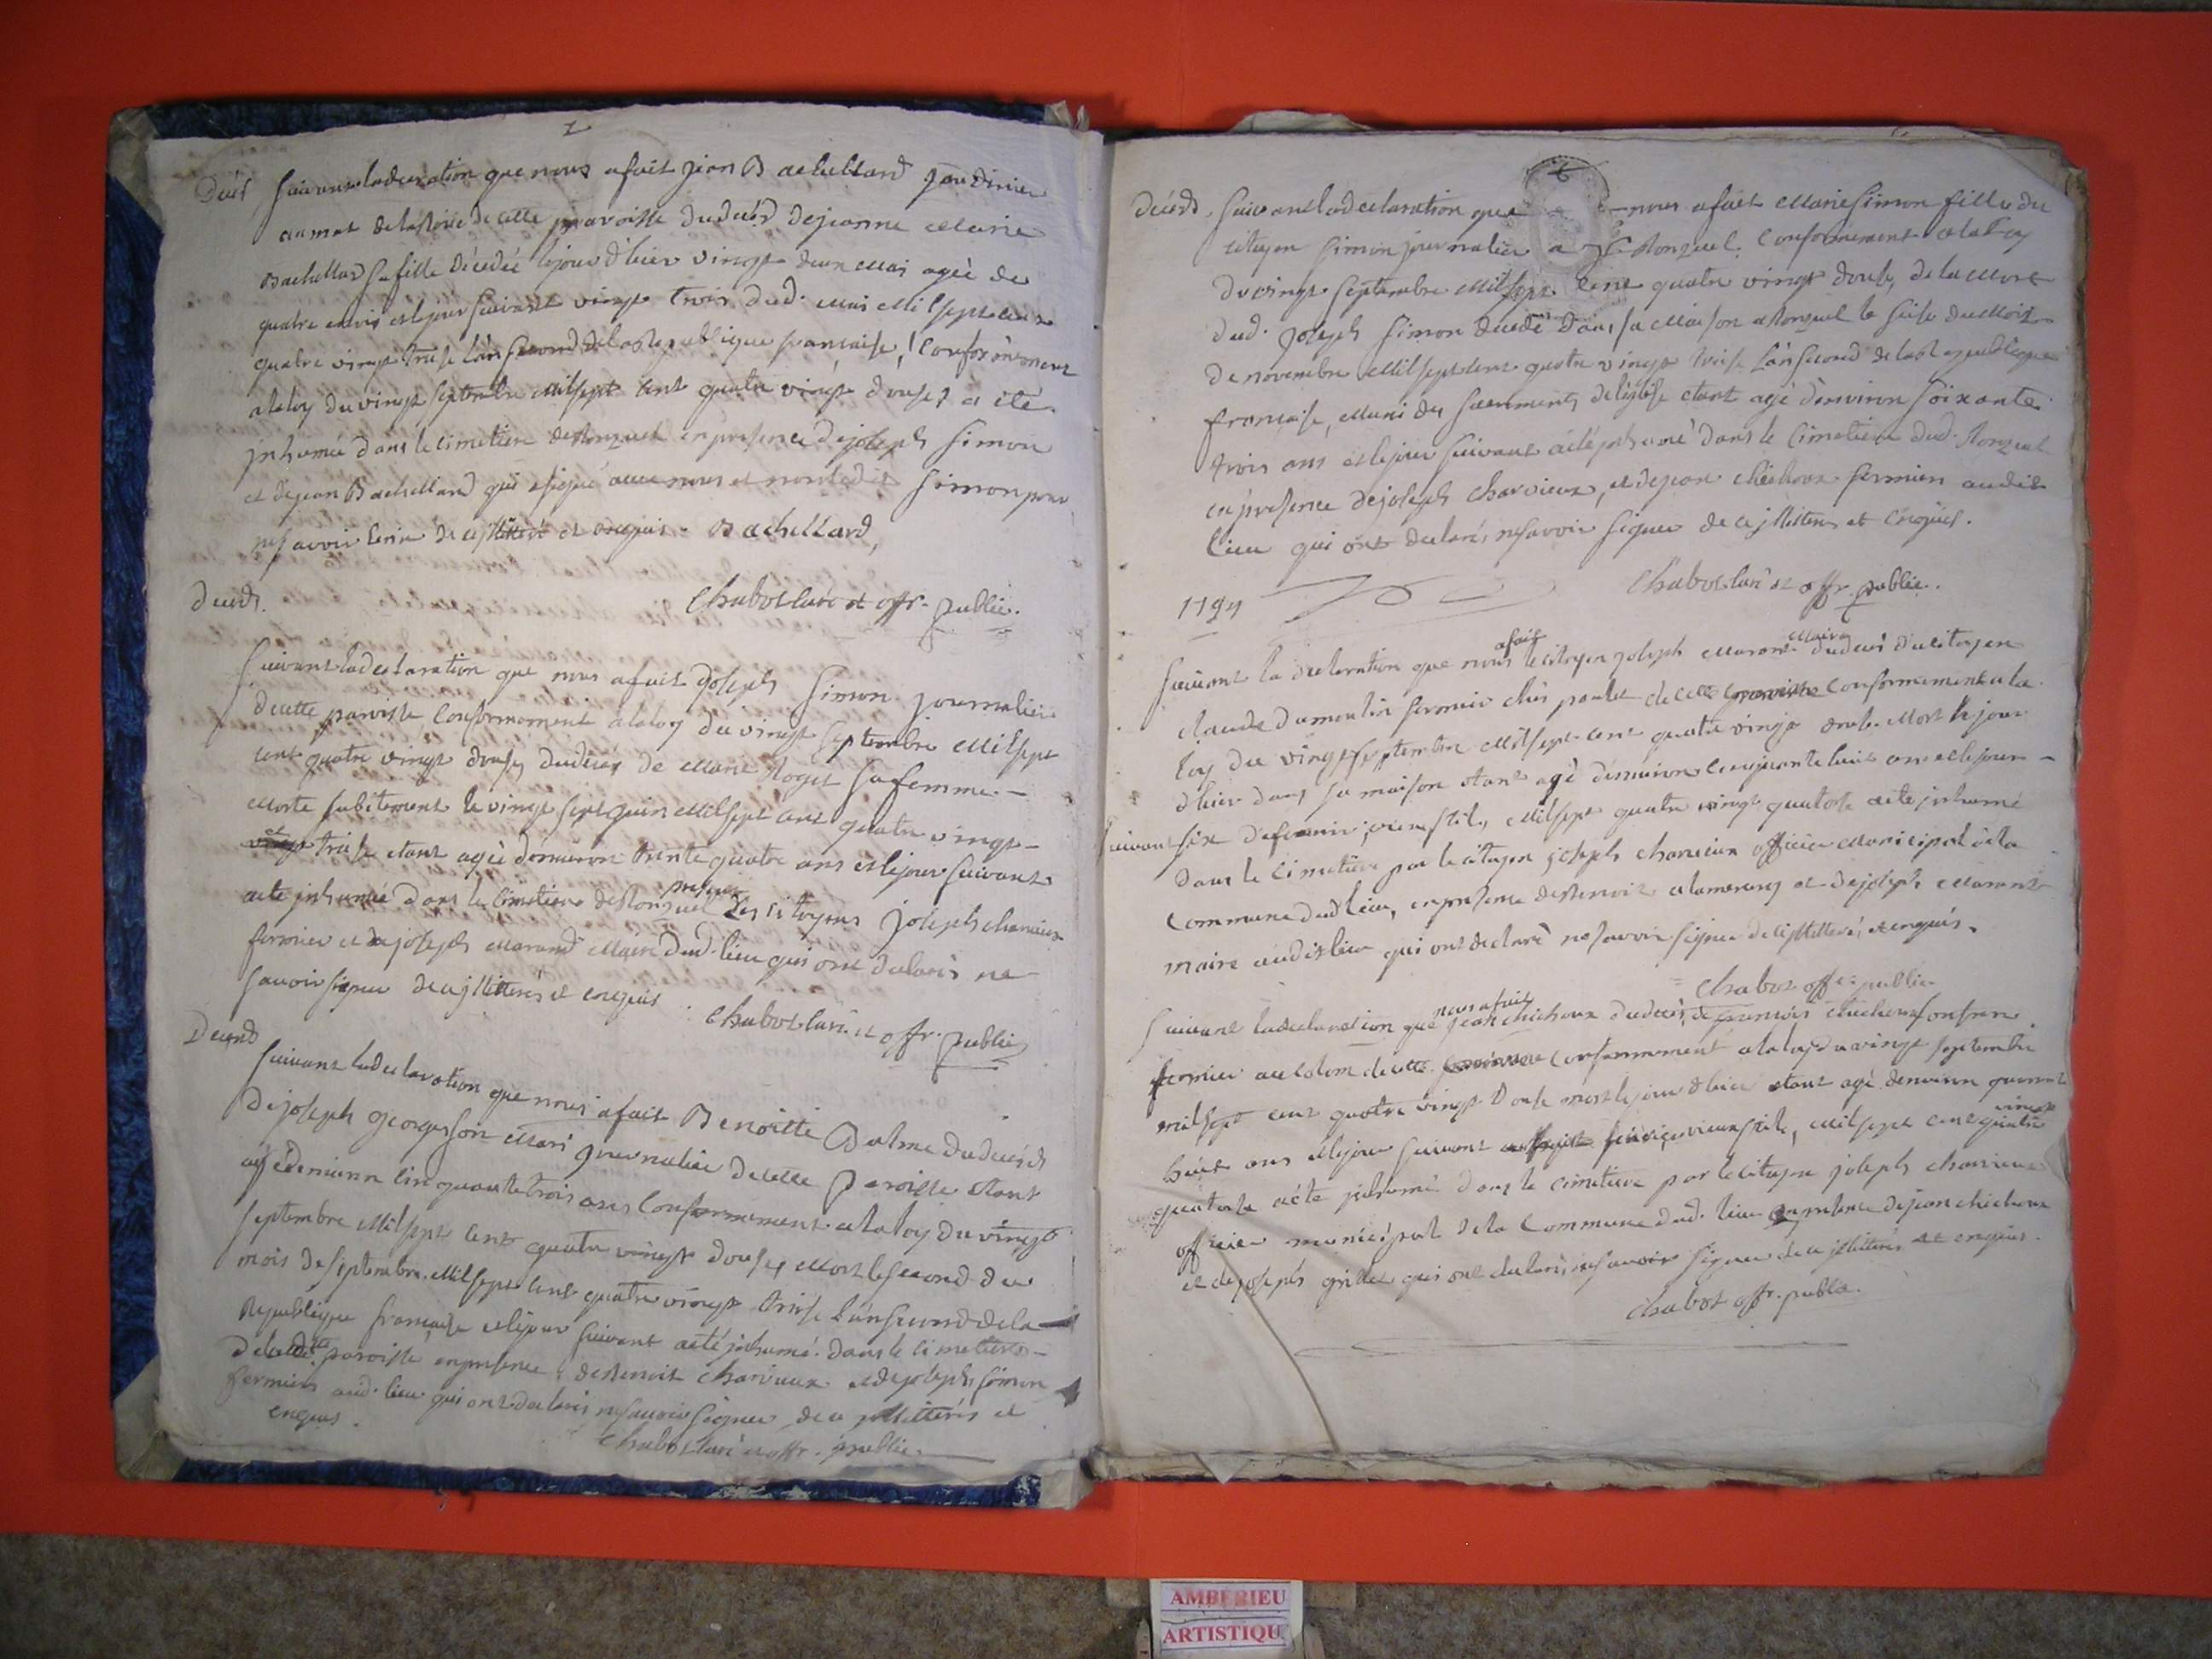 Décès, suivant la declaration que nous a fait jean Bachellard jardinier
de cette paroisse du décès de jeanne Marie
Bachellard sa fille décédée le jour d'hier vingt deux Mai agée de
quatre et le jour suivant vingt trois dud. mai Mil sept cent
quatre vingt treise l'an second de la Republique francaise, conformement
a la loy du vingt septembre mil sept cent quatre vingt douse, a été
jnhumée dans le cimetiere de Ronzuel en presence de joseph Simon
et de jean Bachellard qui a signé avec nous et non ledit Simon pour
ne savoir ecrire de ce jllitteré et enquis. Bachellard,
Chabot curé et offr. public.
décès.
Suivant la declaration que nous a fait joseph Simon journalier
de cette paroisse conformement a la loy du vingt septembre Mil sept
cent quatre vingt douse, du décès de Marie Roget sa femme
Morte subitement le vingt sept juin Mil sept cent quatre vingt
et treise etant agée denviron trente quatre ans et le jour suivant
a ete jnhumée dans le cimetiere de Ronzuel presens les citoyens joseph charvieux
fermier et de joseph Marand Maire dud. lieu qui ont declarés ne
savoir signer de ce jllitterés et enquis. Chabot curé et offr. public
Décès
Suivant la declaration que nous a fait Benoitte Dalme du décès
de joseph georges son Mari journalier de cette Paroisse etant
agé denviron cinquante trois ans conformement a la loy du vingt
septembre Mil sept cent quatre vingt douse, Mort le second du
mois de septembre Mil sept cent quatre vingt treise l'an second de la
Republique francaise et le jour suivant a eté jnhumé dans le cimetiere
de ladite paroisse en presence de Benoit charvieux et de joseph Simon
fermiers aud. lieu qui ont declarés ne savoir signer de ce jllitterés et
enquis.
Chabot curé et offr. public.
décès. Suivant la declaration que nous a fait Marie Simon fille du
citoyen Simon journalier a Ronzuel. Conformement a la loy
du vingt septembre Mil sept cent quatre vingt douse, de la Mort
dud. joseph Simon decedé dans sa Maison a Ronzuel le seise du Mois
de novembre Mil sept cent quatre vingt treise l'an second de la Republique
francaise, Muni des sacrements de l'eglise etant agé d'environ soixante
trois ans et le jour suivant a eté jnhumé dans le cimetiere dud. Ronzuel
en presence de joseph charvieux, et de jean chichoux fermier audit
lieu qui ont declarés ne savoir signer de ce jllitterés et enquis.
Chabot curé et offr. public.
1794
Suivant la declaration que nous a fait le citoyen joseph Marand Maire du décès du citoyen
claude dumoulin fermier chés poulet de cette paroisse conformement a la
loy du vingt septembre Mil sept cent quatre vingt douse. Mort le jour
d'hier dans sa maison etant agé denviron cinquante huit ans et le jour
suivant six de fevrier, vieux stile, Mil sept quatre vingt quatorse a ete jnhumé
dans le cimetiere par le citoyen joseph charvieux officier Municipal de la
commune dud lieu, en presence de Benoit et de joseph Marand
maire audit lieu qui ont declaré ne savoir signer de ce jllitteré, et enquis.
Chabot offr. public
Suivant la declaration que nous a fait jean chichoux du décès de francois chichoux son frere
fermier au colom de cette paroisse conformement a la loy du vingt septembre
mil sept cent quatre vingt douse mort le jour d'hier etant agé denviron quarante
huit ans et le jour suivant vieux stile, Mil sept cent quatre vingt
quatorse a été jnhumé dans le cimetiere par le citoyen joseph charvieux
officier municipal de la Commune dud. lieu en presence de jean chichoux
et de joseph grillet qui ont declarés ne savoir signer de ce jllitterés et enquis.
Chabot offr. public.
AMBERIEU
ARTISTIQU